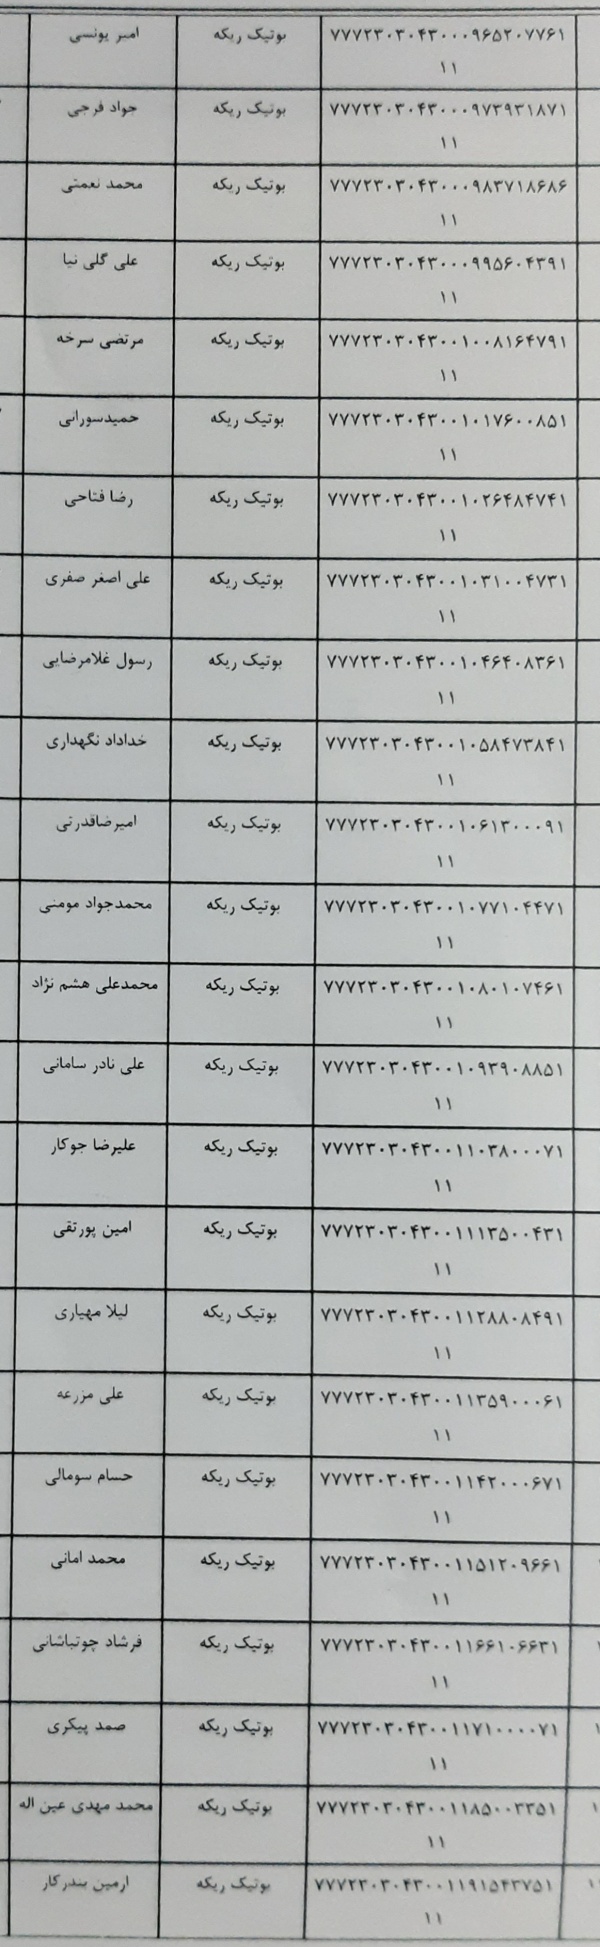 ۷۷۷۲۳۰۳۰۴۳۰۰۰۹۶۵۲۰۷۷۶۱ بوتیک ریکه امیر یونسی
۱۱
۷۷۷۲۳۰۳۰۴۳۰۰۰۹۷۳۹۳۱۸۷۱ بوتیک ریکه جواد فرجی
۱۱
۷۷۷۲۳۰۳۰۴۳۰۰۰۹۸۳۷۱۸۶۸۶ بوتیک ریکه محمد نعمتی
۱۱
۷۷۷۲۳۰۳۰۴۳۰۰۰۹۹۵۶۰۴۳۹۱ بوتیک ریکه علی گلی نیا
۱۱
۷۷۷۲۳۰۳۰۴۳۰۰۱۰۰۸۱۶۴۷۹۱ بوتیک ریکه مرتضی سرخه
۱۱
۷۷۷۲۳۰۳۰۴۳۰۰۱۰۱۷۶۰۰۸۵۱ بوتیک ریکه حمیدسورانی
۱۱
۷۷۷۲۳۰۳۰۴۳۰۰۱۰۲۶۴۸۴۷۴۱ بوتیک ریکه رضا فتاحی
۱۱
۷۷۷۲۳۰۳۰۴۳۰۰۱۰۳۱۰۰۴۷۳۱ بوتیک ریکه علی اصغر صفری
۱۱
۷۷۷۲۳۰۳۰۴۳۰۰۱۰۴۶۴۰۸۳۶۱ بوتیک ریکه رسول غلامرضایی
۱۱
۷۷۷۲۳۰۳۰۴۳۰۰۱۰۵۸۴۷۳۸۴۱ بوتیک ریکه خداداد نگهداری
۱۱
۷۷۷۲۳۰۳۰۴۳۰۰۱۰۶۱۳۰۰۰۹۱ بوتیک ریکه امیرضاقدرتی
۱۱
۷۷۷۲۳۰۳۰۴۳۰۰۱۰۷۷۱۰۴۴۷۱ بوتیک ریکه محمدجواد مومنی
۱۱
۷۷۷۲۳۰۳۰۴۳۰۰۱۰۸۰۱۰۷۴۶۱ بوتیک ریکه محمدعلی هشم نژاد
۱۱
۷۷۷۲۳۰۳۰۴۳۰۰۱۰۹۳۹۰۸۸۵۱ بوتیک ریکه علی نادر سامانی
۱۱
۷۷۷۲۳۰۳۰۴۳۰۰۱۱۰۳۸۰۰۰۷۱ بوتیک ریکه علیرضا جوکار
۱۱
۷۷۷۲۳۰۳۰۴۳۰۰۱۱۱۳۵۰۰۴۳۱ بوتیک ریکه امین پورتقی
۱۱
۷۷۷۲۳۰۳۰۴۳۰۰۱۱۲۸۸۰۸۴۹۱ بوتیک ریکه لیلا مهیاری
۱۱
۷۷۷۲۳۰۳۰۴۳۰۰۱۱۳۵۹۰۰۰۶۱ بوتیک ریکه علی مزرعه
۱۱
۷۷۷۲۳۰۳۰۴۳۰۰۱۱۴۲۰۰۰۶۷۱ بوتیک ریکه حسام سومالی
۱۱
۷۷۷۲۳۰۳۰۴۳۰۰۱۱۵۱۲۰۹۶۶۱ بوتیک ریکه محمد امانی
۱۱
۷۷۷۲۳۰۳۰۴۳۰۰۱۱۶۶۱۰۶۶۳۱ بوتیک ریکه فرشاد چوتباشانی
۱۱
۷۷۷۲۳۰۳۰۴۳۰۰۱۱۷۱۰۰۰۰۷۱ بوتیک ریکه صمد پیکری
۱۱
۷۷۷۲۳۰۳۰۴۳۰۰۱۱۸۵۰۰۳۳۵۱ بوتیک ریکه محمد مهدی عین اله
۱۱
۷۷۷۲۳۰۳۰۴۳۰۰۱۱۹۱۵۴۳۷۵۱ بوتیک ریکه ارمین بندرکار
۱۱